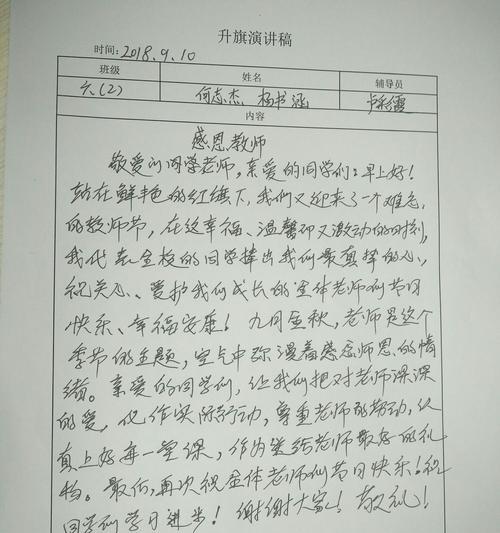 升旗演讲稿
时间：2018.9.10
班级 姓名 辅导员
六(2) 何志杰、杨书涵 卢彩霞
内容
感恩教师
敬爱的同学老师，亲爱的同学们：早上好！
站在鲜艳的红旗下，我们又迎来了一个难忘
的教师节，在这幸福、温馨而又激动的时刻，
我代表全校的同学捧出我们最真挚的心，
祝关心、爱护我们成长的全体老师们节日
快乐、幸福安康！九月金秋，老师是这个
季节的主题，空气中弥漫着感念师恩的情
绪。亲爱的同学们，让我们把对老师深深
的爱，化作实际行动，尊重老师的劳动，认
真上好每一堂课，作为送给老师最好的礼
物。最后，再次祝全体老师们节日快乐！祝
同学们学习进步！谢谢大家！敬礼！